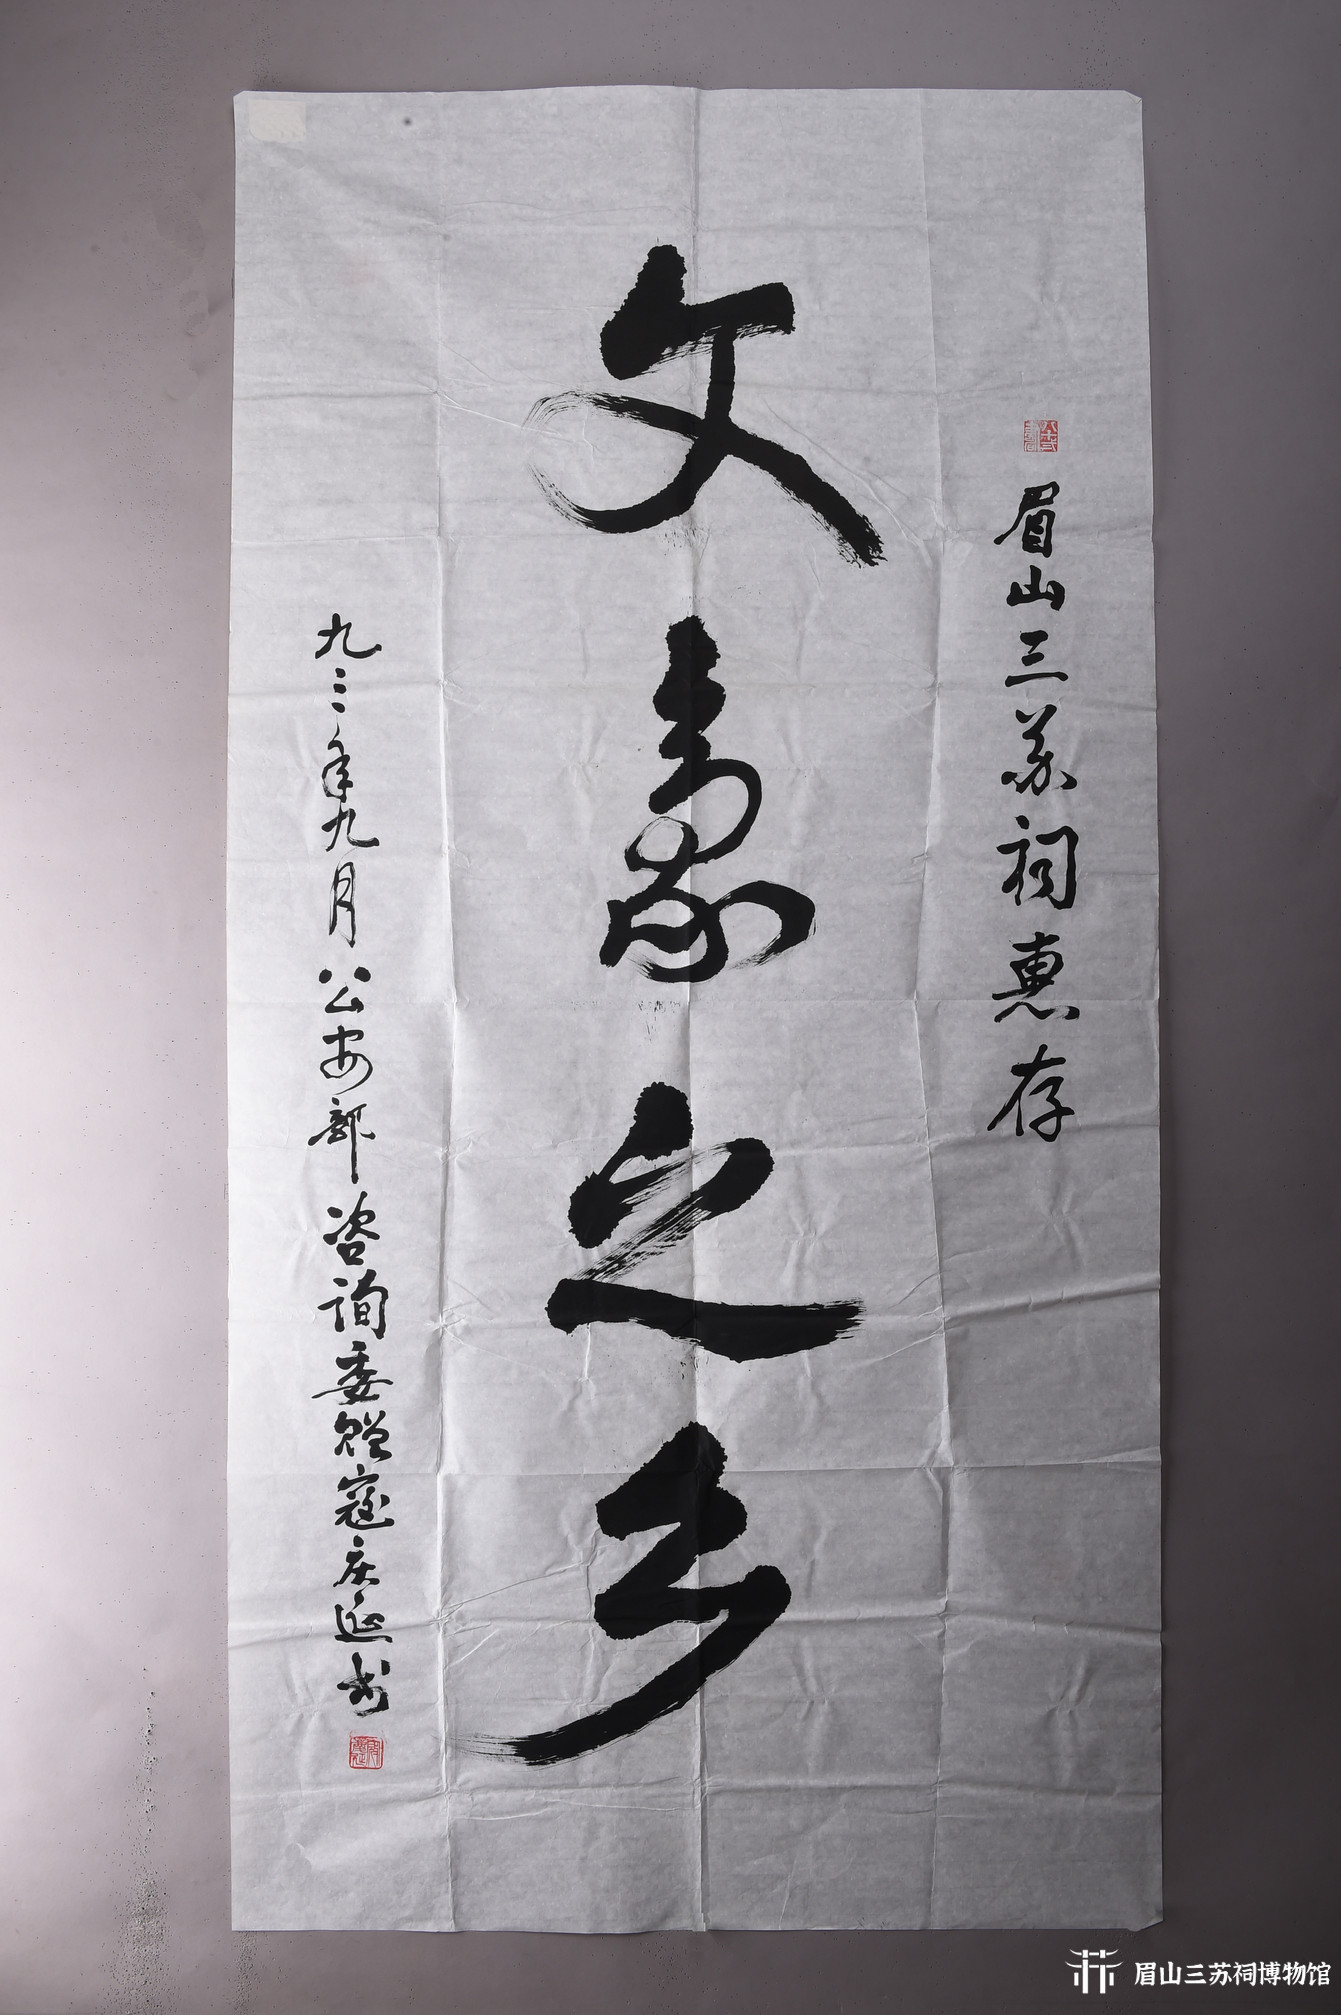 眉山三苏祠惠存
文豪之乡
九三年九月公安部咨询委赠寇庆延书
眉山三苏祠博物馆